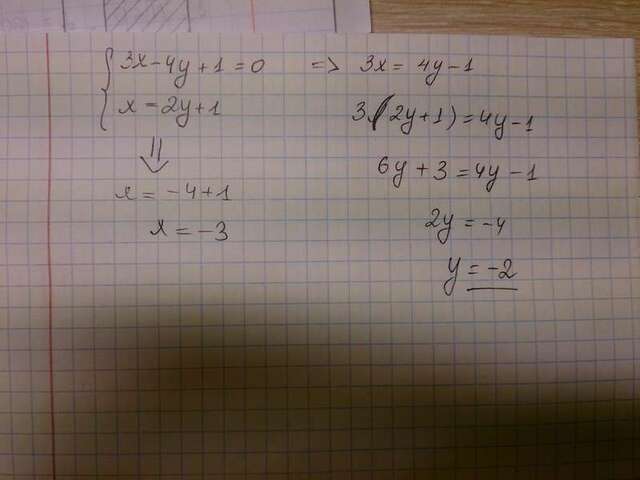 3x-4y+1=0 => 3x= 4y-1
x=2y+1
3(2y+1)=4y-1
6y+3=4y-1
x=-4+1
2y=-4
x=-3
y=-2